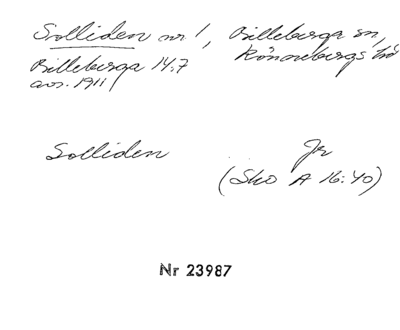 Solliden nr 1, Billeberga sn,
Billeberga 14:7 Rönnebergs hd
avs. 1911
Solliden Jr
(Sko A 16:40)
Nr 23987